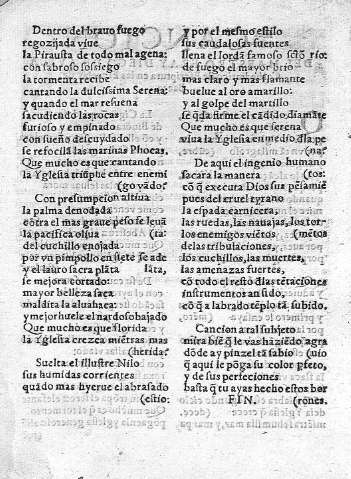 Dentro del brauo fuego
regozijada viue
la Pirausta de todo mal agena:
con sabroso sossiego
la tormenta recibe
cantando la dulcissima Serena:
y quando el mar resuena
sacudiendo las rocas
furioso y empinado
con sueño descuydado
se refocilã las marinas Phocas,
Que mucho es que cantando
la Yglesia triũphe entre enemi
(go vãdo.
Con presumpcion altiua
la palma denodada
cõtra el mas graue peso se leuã
la pacifica oliua (ta:
del cuchillo enojada
por vn pimpollo en siete se ade
y el lauro sacra plãta (lãta,
se mejora cortado:
mayor belleza saca
maldita la aluahaca:
y mejor huele el nardo sobajado
Que mucho es que florida
la Yglesia crezca miẽtras mas
(herida?
Suelta el illustre Nilo
sus humidas corrientes
quãdo mas hyerue el abrasado
(estio:
y por el mesmo estilo
sus caudalosas fuentes
llena el Iordã famoso sctõ rio:
de fuego el mayor brio
mas claro y mas flamante
buelue al oro amarillo:
y al golpe del martillo
se q̃da firme el cãdido diamãte
Que mucho es que serena
viua la Yglesia en medio d̃la pe
(na?
De aqui el ingenio humano
sacara la manera (tos:
cõ q̃ executa Dios sus pẽsamiẽ
pues del cruel tyrano
la espada carnicera,
las ruedas, las nauajas, los tor-
los enemigos viẽtos (mẽtos
de las tribulaciones,
los cuchillos, las muertes,
las amenazas fuertes,
cõ todo el resto d̃las tẽtaciones
instrumentos an sido,
cõ q̃ a labrado tẽplo tã subido.
Cancion a tal subjeto
mira biẽ q̃ le vas haziẽdo agra
dõde ay pinzel tã sabio (uio
q̃ aqui le põga su color p̃feto,
y de sus perfeciones
basta q̃ tu ayas hecho estos bor
FIN. (rones.